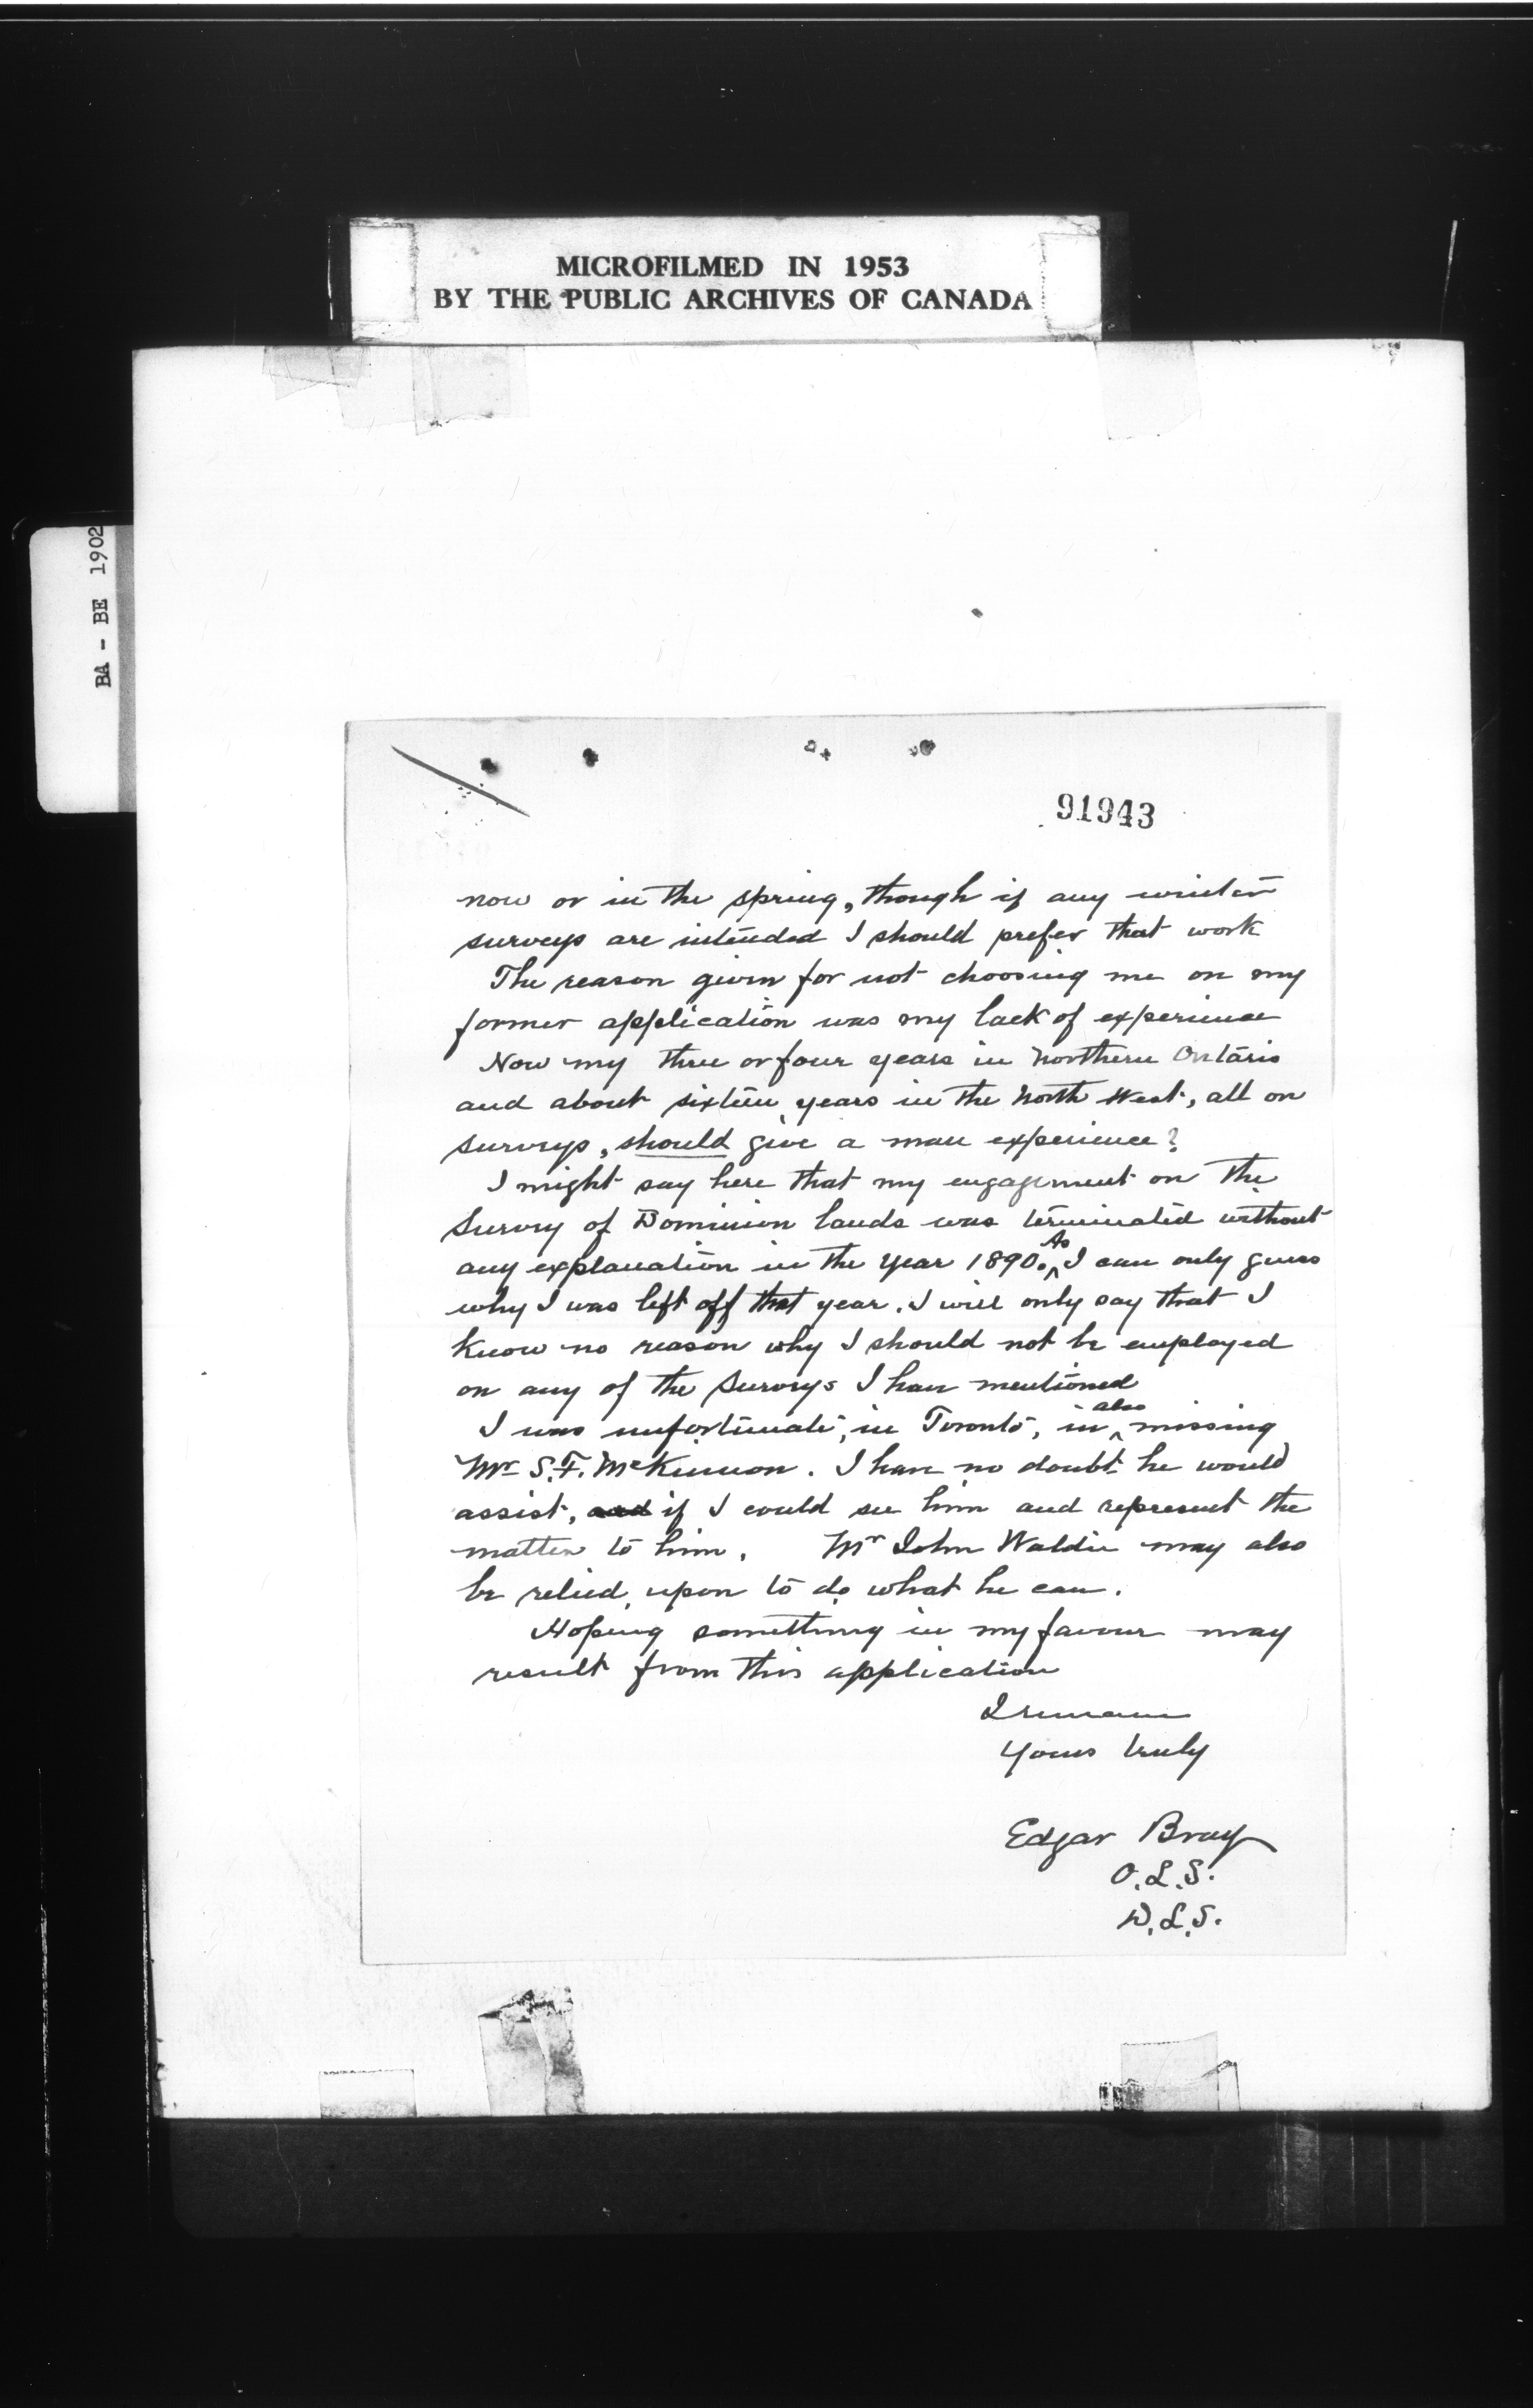 MICROFILMED IN 1953
BY THE PUBLIC ARCHIVES OF CANADA
BA - BE 1902
91943
now or in the spring, though if any winter
surveys are intended I should prefer that work
The reason given for not choosing me on my
former application was my lack of experience
Now my three or four years in Northern Ontario
and about sixteen years in the North West, all on
surveys, should give a man experience?
I might say here that my engagement on the
Survey of Dominion lands was terminated without
any explanation in the year 1890. As I can only guess
why I was left off that year. I will only say that I
know no reason why I should not be employed
on any of the Surveys I have mentioned
I was unfortunate, in Toronto, in also missing
Mr S.F. McKinnon. I have no doubt he would
assist, and if I could see him and represent the
matter to him. Mr John Waldie may also
be relied upon to do what he can.
Hoping something in my favour may
result from this application
I remain
Yours truly
Edgar Bray
O.L.S.
D.L.S.